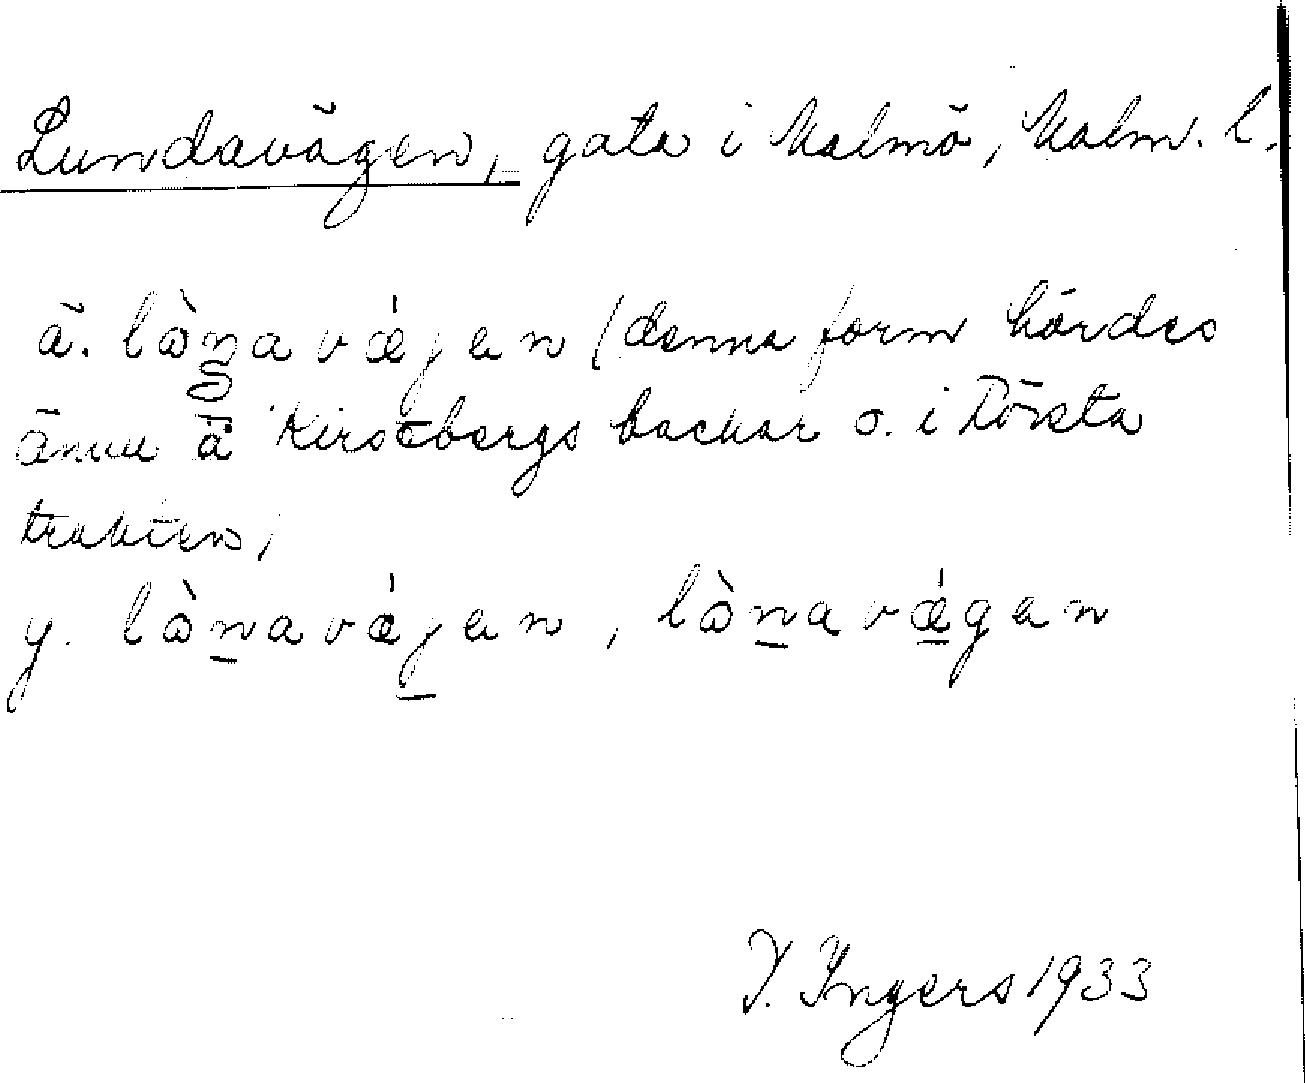 Lundavägen, gata i Malmö, Malm. l.
ä. lὼnavǽjen (denna form hördes
ännu å Kirsebergs backar o. i Törsta
trakten,
y. lὼnavǽjen, lὼnavǽgan
I. Ingers 1933